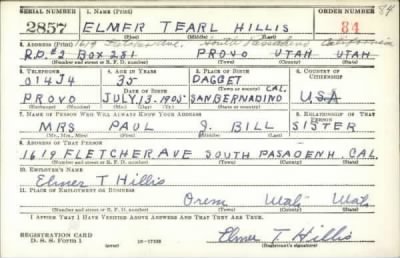 SERIAL NUMBER 1. NAME (Print) ORDER NUMBER
2857 ELMER TEARL HILLIS 84
84
(First) (Middle) (Last)
2. ADDRESS (Print) 1619 Fletcher Ave. South Pasadena California
R.D.#2 BOX 251 PROVO UTAH UTAH
(Number and street or R. F. D. number) (Town) (County) (State)
3. TELEPHONE 4. AGE IN YEARS 5. PLACE OF BIRTH 6. COUNTRY OF CITIZENSHIP
014J4 35 DAGGET
DATE OF BIRTH (Town or county) CAL.
PROVO JULY.13.1905 SAN BERNADINO USA
(Exchange) (Number) (Mo.) (Day) (Yr.) (State or country)
7. NAME OF PERSON WHO WILL ALWAYS KNOW YOUR ADDRESS 8. RELATIONSHIP OF THAT PERSON
MRS PAUL J BILL SISTER
(Mr., Mrs., Miss) (First) (Middle) (Last)
9. ADDRESS OF THAT PERSON
1619 FLETCHER AVE SOUTH PASADENH CAL.
(Number and street or R. F. D. number) (Town) (County) (State)
10. EMPLOYER'S NAME
Elmer T Hillis
11. PLACE OF EMPLOYMENT OR BUSINESS
Orem Utah Utah
(Number and street or R. F. D. number) (Town) (County) (State)
I AFFIRM THAT I HAVE VERIFIED ABOVE ANSWERS AND THAT THEY ARE TRUE.
REGISTRATION CARD
D. S. S. Form 1 16-17105 Elmer T. Hillis
(Registrant's signature)